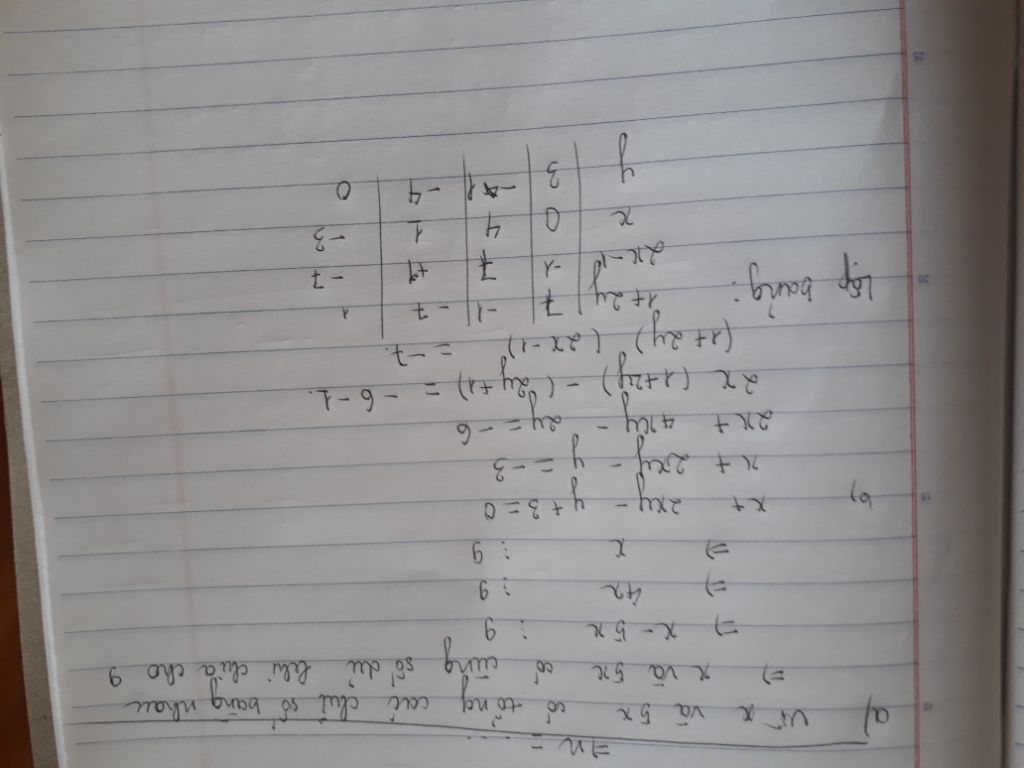 ⇒ n = ....
a) Vì x và 5x có tổng các chữ số bằng nhau
⇒ x và 5x có cùng số dư khi chia cho 9
⇒ x - 5x ⋮ 9
⇒ 4x ⋮ 9
⇒ x ⋮ 9
b) x + 2xy - y + 3 = 0
x + 2xy - y = -3
2x + 4xy - 2y = -6
2x (1+2y) - (2y+1) = -6-1.
(1+2y) (2x-1) = -7.
Lập bảng:
1+2y | 7 | -1 | -7 | 1
2x-1 | -1 | 7 | +1 | -7
x | 0 | 4 | 1 | -3
y | 3 | -1 | -4 | 0